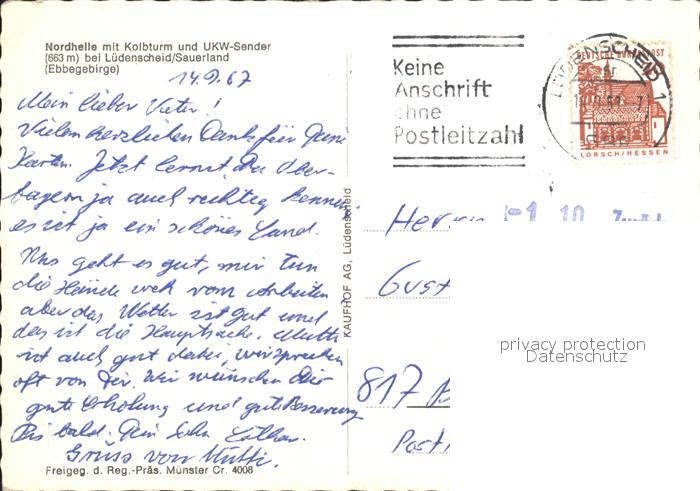 Nordhelle mit Kolbturm und UKW-Sender
(663 m) bei Lüdenscheid/Sauerland
(Ebbegebirge)
14.9.67
Mein lieber Vater!
Vielen herzlichen Dank für Deine
Karten. Jetzt lernst Du Ober-
bayern ja auch richtig kennen
es ist ja ein schönes Land.
Uns geht es gut, mir tun
die Hände weh vom Arbeiten
aber das Wetter ist gut und
das ist die Hauptsache. Mutti
ist auch gut dabei, wir sprechen
oft von Dir. Wir wünschen Dir
gute Erholung und gute Besserung
Bis bald. Dein Sohn Lothar.
Gruss von Mutti.
Freigeg. d. Reg.-Präs. Münster Cr. 4008
KAUFHOF AG, Lüdenscheid
Keine
Anschrift
ohne
Postleitzahl
LÜDENSCHEID 1
DEUTSCHE BUNDESPOST
LORSCH/HESSEN
Herrn
Gust
817 B
Post
privacy protection
Datenschutz